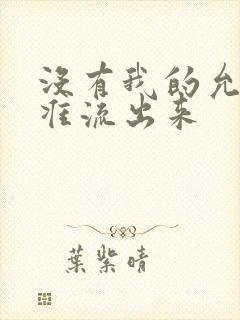 没有我的允
准流出来
葉紫晴